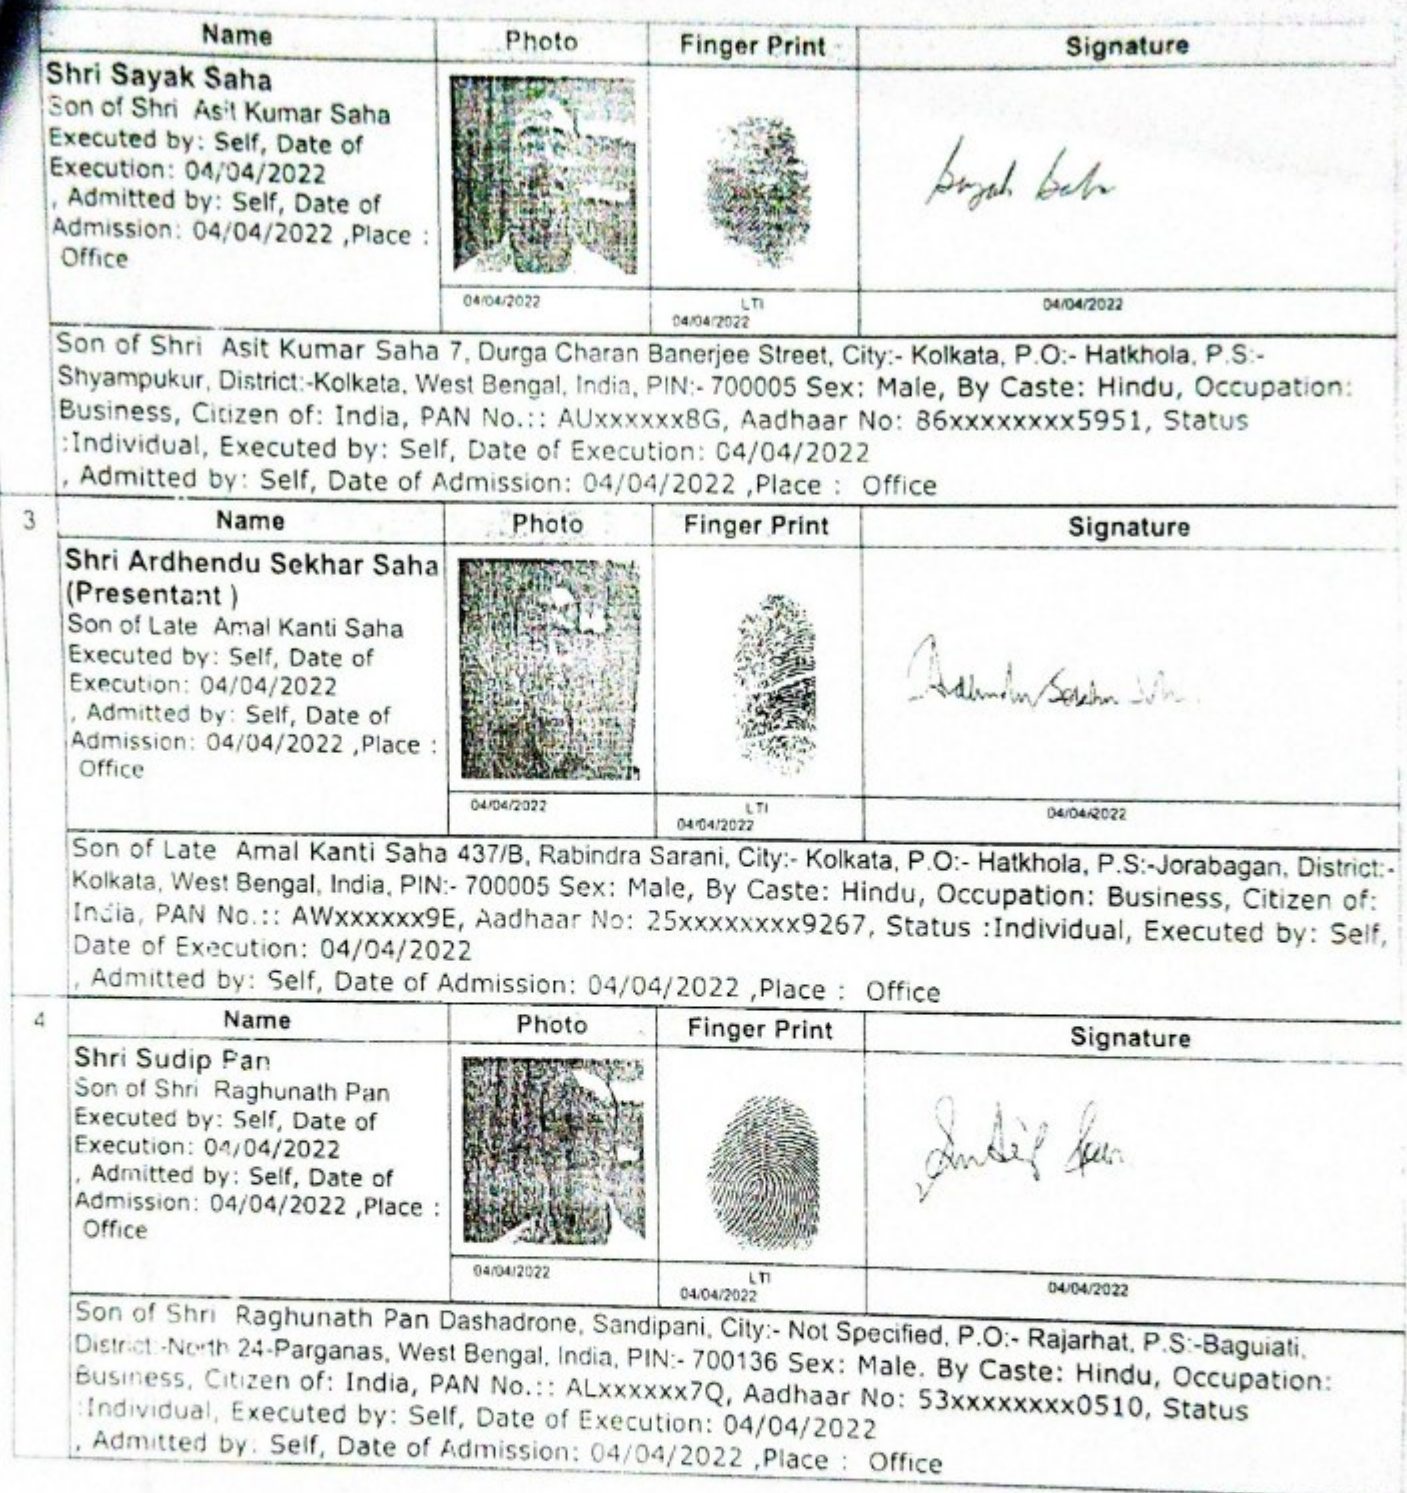 Name Photo Finger Print Signature
Shri Sayak Saha
Son of Shri Asit Kumar Saha
Executed by: Self, Date of
Execution: 04/04/2022
, Admitted by: Self, Date of
Admission: 04/04/2022 ,Place :
Office
Sayak Saha
04/04/2022 LTI 04/04/2022
04/04/2022
Son of Shri Asit Kumar Saha 7, Durga Charan Banerjee Street, City:- Kolkata, P.O:- Hatkhola, P.S:-
Shyampukur, District:-Kolkata, West Bengal, India, PIN:- 700005 Sex: Male, By Caste: Hindu, Occupation:
Business, Citizen of: India, PAN No.:: AUxxxxxx8G, Aadhaar No: 86xxxxxxxx5951, Status
:Individual, Executed by: Self, Date of Execution: 04/04/2022
, Admitted by: Self, Date of Admission: 04/04/2022 ,Place : Office
3 Name Photo Finger Print Signature
Shri Ardhendu Sekhar Saha
(Presentant )
Son of Late Amal Kanti Saha
Executed by: Self, Date of
Execution: 04/04/2022
, Admitted by: Self, Date of
Admission: 04/04/2022 ,Place :
Office
Ardhendu Sekhar Saha
04/04/2022 LTI 04/04/2022
04/04/2022
Son of Late Amal Kanti Saha 437/B, Rabindra Sarani, City:- Kolkata, P.O:- Hatkhola, P.S:-Jorabagan, District:-
Kolkata, West Bengal, India, PIN:- 700005 Sex: Male, By Caste: Hindu, Occupation: Business, Citizen of:
India, PAN No.:: AWxxxxxx9E, Aadhaar No: 25xxxxxxxx9267, Status :Individual, Executed by: Self,
Date of Execution: 04/04/2022
, Admitted by: Self, Date of Admission: 04/04/2022 ,Place : Office
4 Name Photo Finger Print Signature
Shri Sudip Pan
Son of Shri Raghunath Pan
Executed by: Self, Date of
Execution: 04/04/2022
, Admitted by: Self, Date of
Admission: 04/04/2022 ,Place :
Office
Sudip Pan
04/04/2022 LTI 04/04/2022
04/04/2022
Son of Shri Raghunath Pan Dashadrone, Sandipani, City:- Not Specified, P.O:- Rajarhat, P.S:-Baguiati,
District:-North 24-Parganas, West Bengal, India, PIN:- 700136 Sex: Male, By Caste: Hindu, Occupation:
Business, Citizen of: India, PAN No.:: ALxxxxxx7Q, Aadhaar No: 53xxxxxxxx0510, Status
:Individual, Executed by: Self, Date of Execution: 04/04/2022
, Admitted by: Self, Date of Admission: 04/04/2022 ,Place : Office